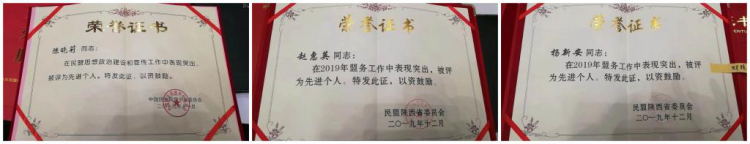 荣誉证书
陈晓莉 同志：
在民盟思想政治建设和宣传工作中表现突出，
被评为先进个人。特发此证，以资鼓励。
荣誉证书
赵惠英 同志：
在2019年盟务工作中表现突出，被评
为先进个人。特发此证，以资鼓励。
民盟陕西省委员会
二〇一九年十二月
荣誉证书
杨新安 同志：
在2019年盟务工作中表现突出，被评
为先进个人。特发此证，以资鼓励。
民盟陕西省委员会
二〇一九年十二月